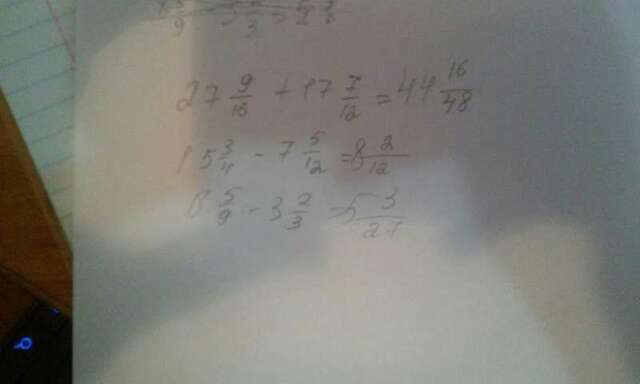 27 9/16 + 17 7/12 = 44 16/48
15 3/4 - 7 5/12 = 8 2/12
8 5/9 - 3 2/3 = 5 3/27